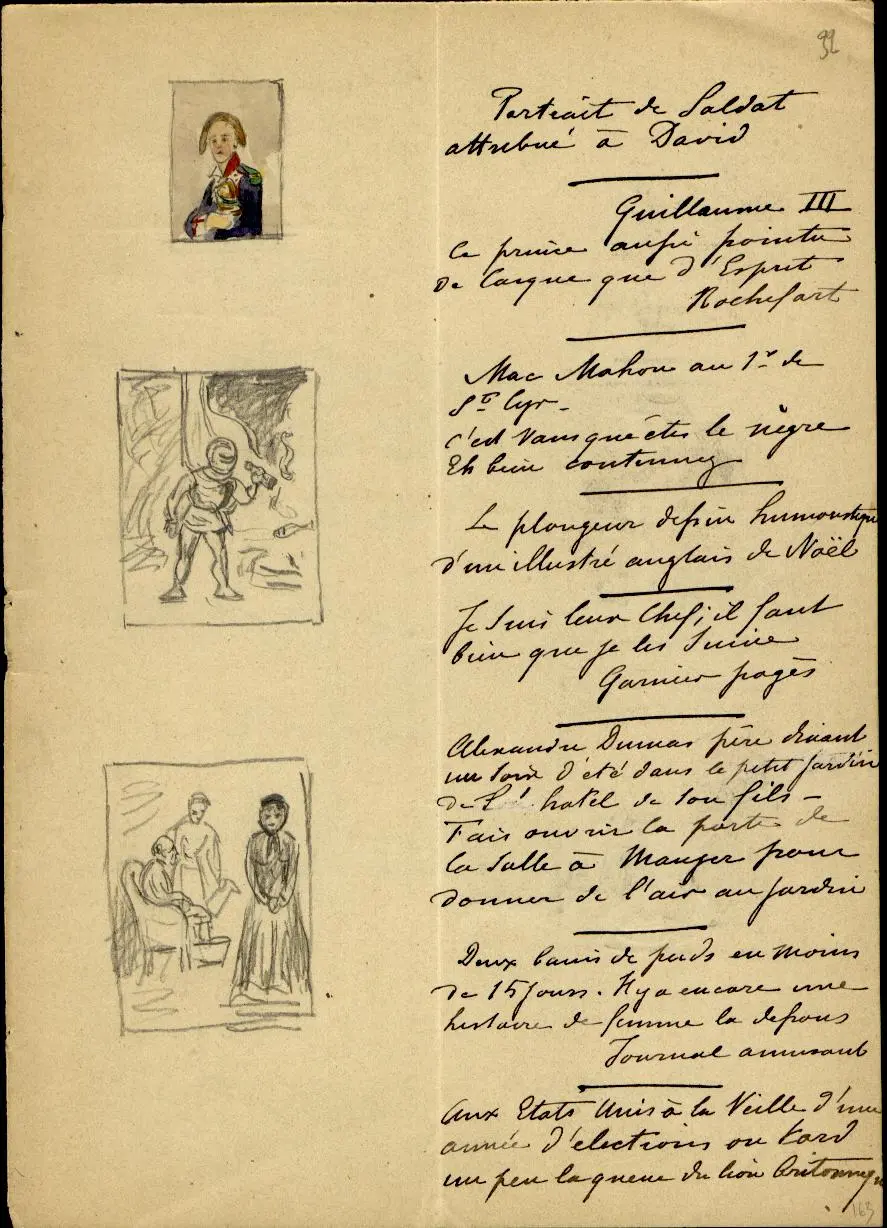 92
Portrait de Soldat
attribué à David
Guillaume III
Ce prince aussi pointu
de Casque que d'Esprit
Rochefort
Mac Mahon au 1er de
St Cyr -
C'est Vous qui êtes le nègre
Eh bien continuez
Le plongeur dessin humoristique
d'un illustré anglais de Noël
Je Suis leur Chef; il faut
bien que je les Suive
Garnier pagès
Alexandre Dumas père disant
un soir d'été dans le petit jardin
de l' hotel de son fils -
Fais ouvrir la porte de
la Salle à Manger pour
donner de l'air au jardin
Deux bains de pieds en moins
de 15 jours. Il y a encore une
histoire de femme la dessous
Journal amusant
Aux Etats Unis à la Veille d'une
année d'élections on tord
un peu la queue du lion
163